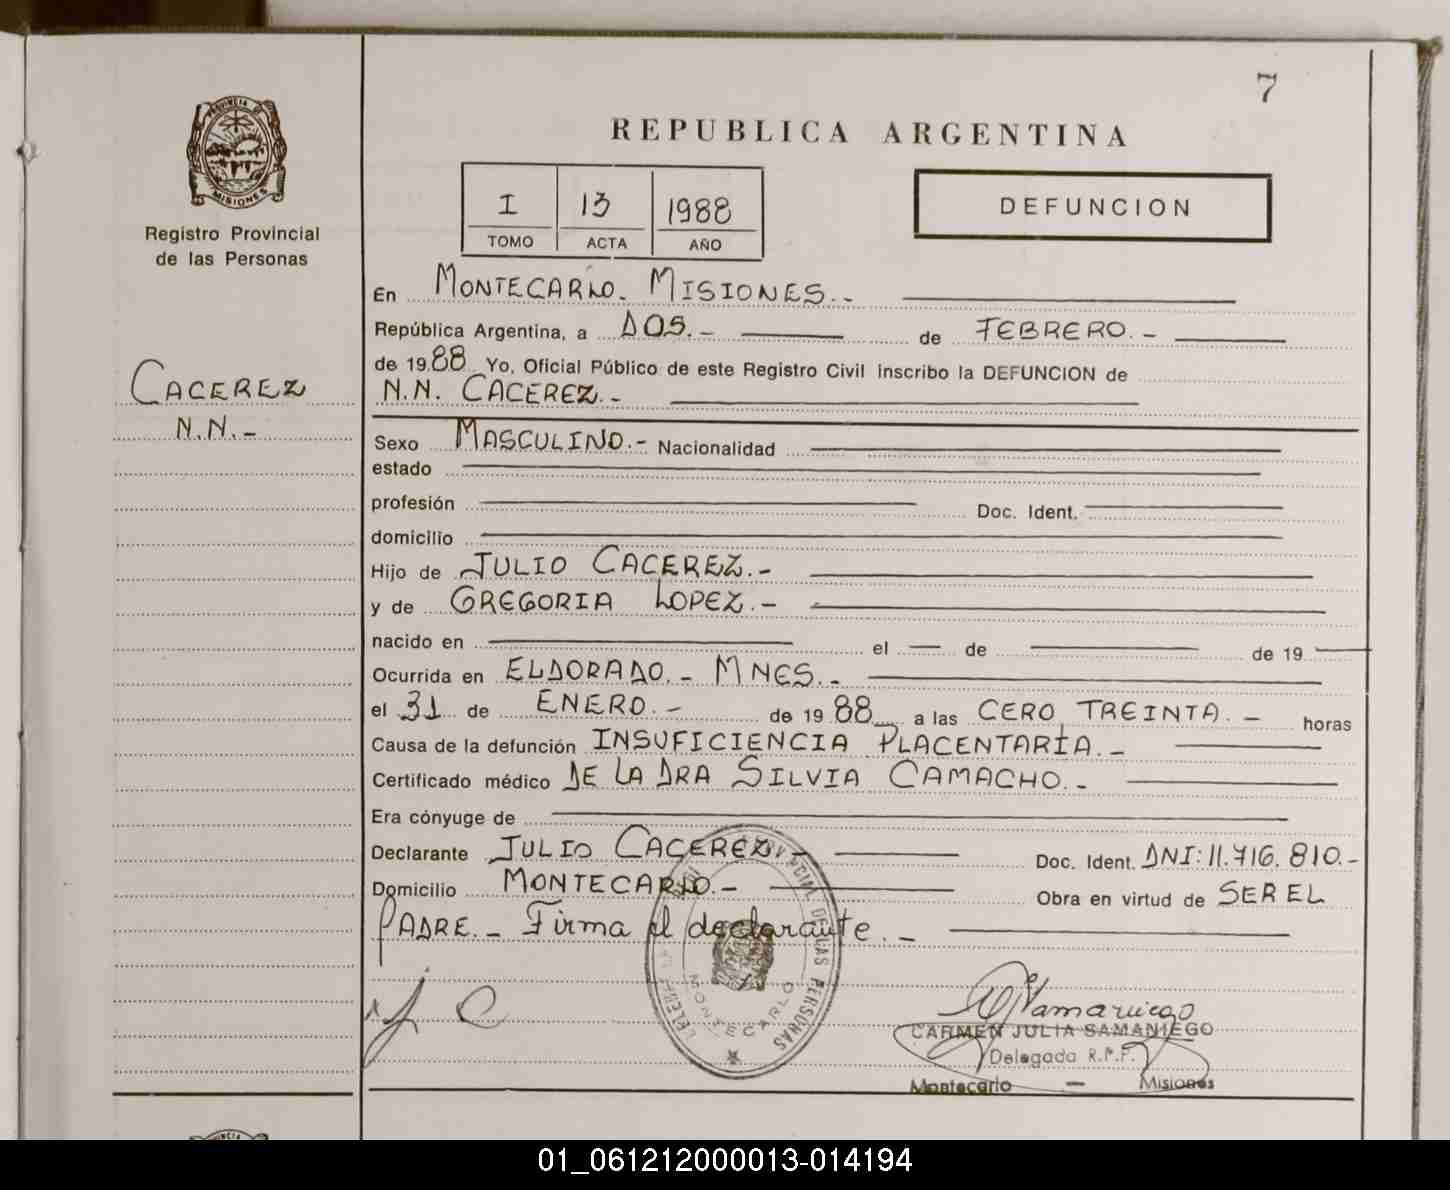 7
REPUBLICA ARGENTINA
PROVINCIA DE
MISIONES
Registro Provincial
de las Personas
I 13 1988
TOMO ACTA AÑO
DEFUNCION
En MONTECARLO. MISIONES.-
República Argentina, a DOS.- de FEBRERO.-
de 1988 Yo, Oficial Público de este Registro Civil inscribo la DEFUNCION de
CACEREZ
N.N.-
N.N. CACEREZ.-
Sexo MASCULINO.- Nacionalidad
estado
profesión Doc. Ident.
domicilio
Hijo de JULIO CACEREZ.-
y de GREGORIA LOPEZ.-
nacido en el de de 19
Ocurrida en ELDORADO.- MNES.-
el 31 de ENERO.- de 1988 a las CERO TREINTA.- horas
Causa de la defunción INSUFICIENCIA PLACENTARIA.-
Certificado médico DE LA DRA SILVIA CAMACHO.-
Era cónyuge de
Declarante JULIO CACEREZ.- Doc. Ident. DNI: 11.716.810.-
Domicilio MONTECARLO.- Obra en virtud de SER EL
PADRE.- Firma el declarante.-
DE LAS PERSONAS
MONTECARLO
J C
CARMEN JULIA SAMANIEGO
Delegada R.P.P.
Montecarlo - Misiones
01_061212000013-014194